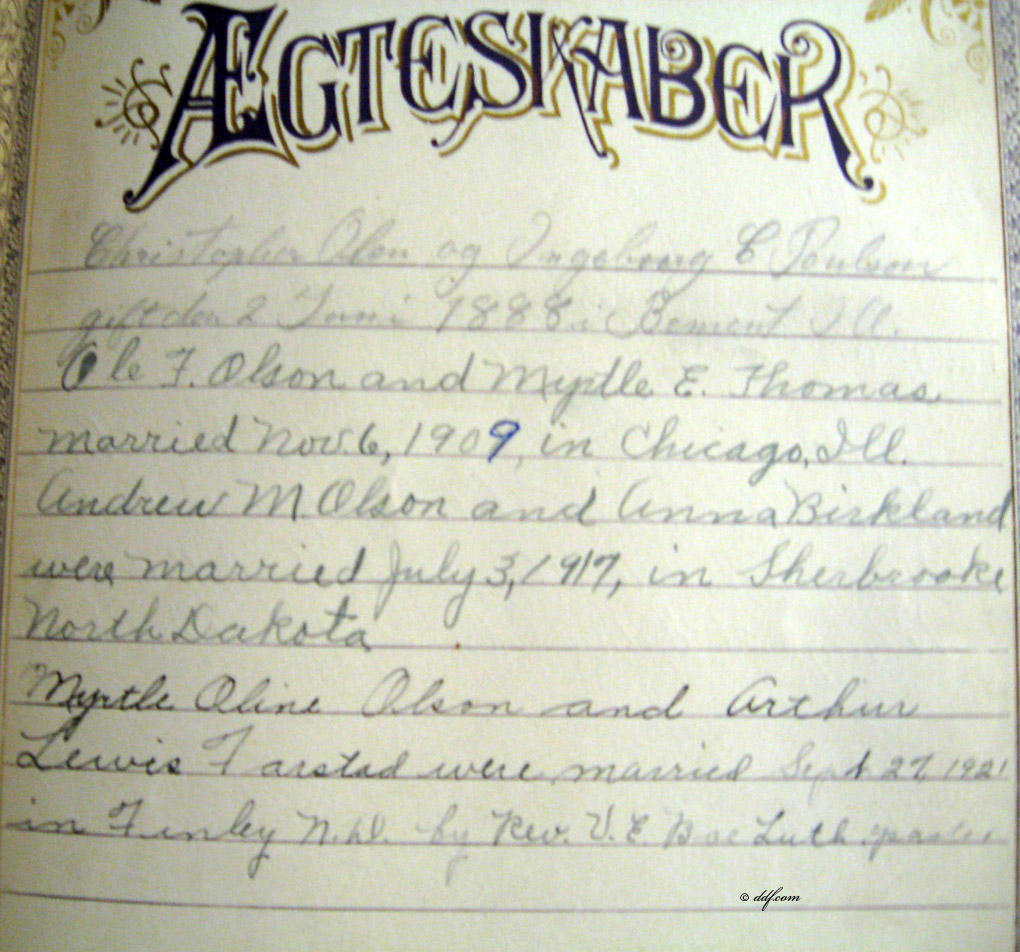 ÆGTESKABER
Christopher Olson og Ingeborg C Poulson
gift den 2 Juni 1888 i Bement Ill.
Ole F. Olson and Myrtle E. Thomas
married Nov. 6, 1909, in Chicago, Ill.
Andrew M Olson and Anna Birkland
were married July 3, 1917, in Sherbrooke
North Dakota
Myrtle Oline Olson and Arthur
Lewis Farstad were married Sept 27, 1921
in Finley N.D. by Rev. V. E. Boe Luth. pastor
© ddf.com